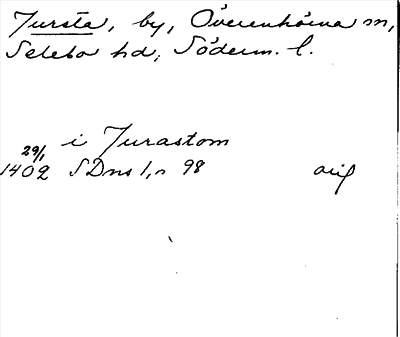 Jursta, by, Överenhörna sn,
Selebo hd, Söderm. l.
i Jurastom
29/1
1402 SDns 1, n 98 orig